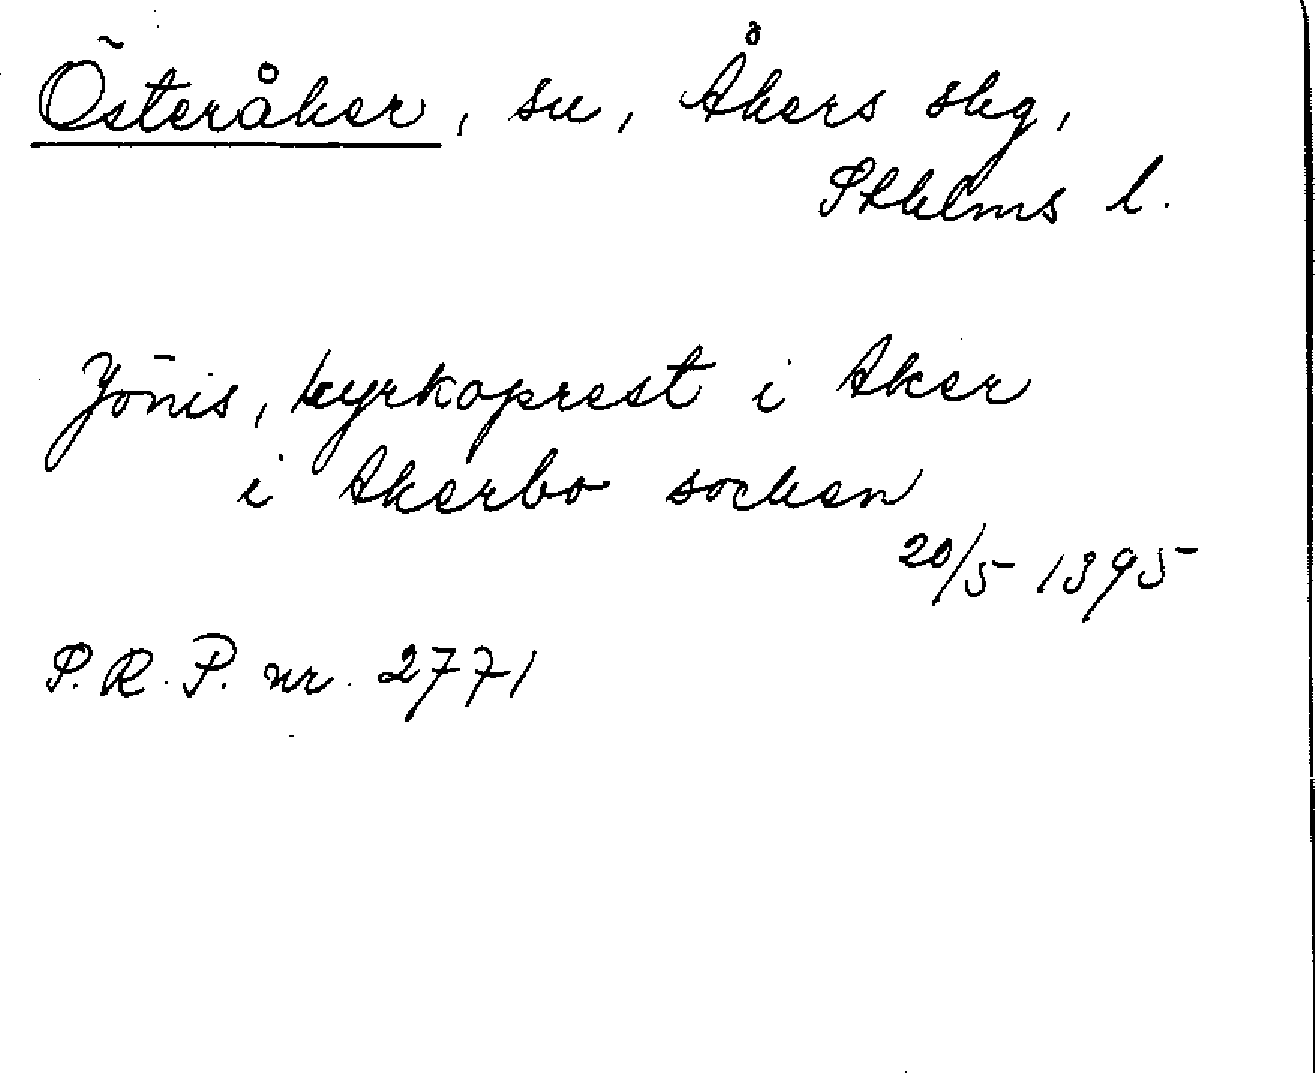 Österåker, sn, Åkers skg,
Sthlms l.
Jönis, kyrkoprest i Aker
i Akerbo socken
20/5 1395
S.R.P. nr. 2771